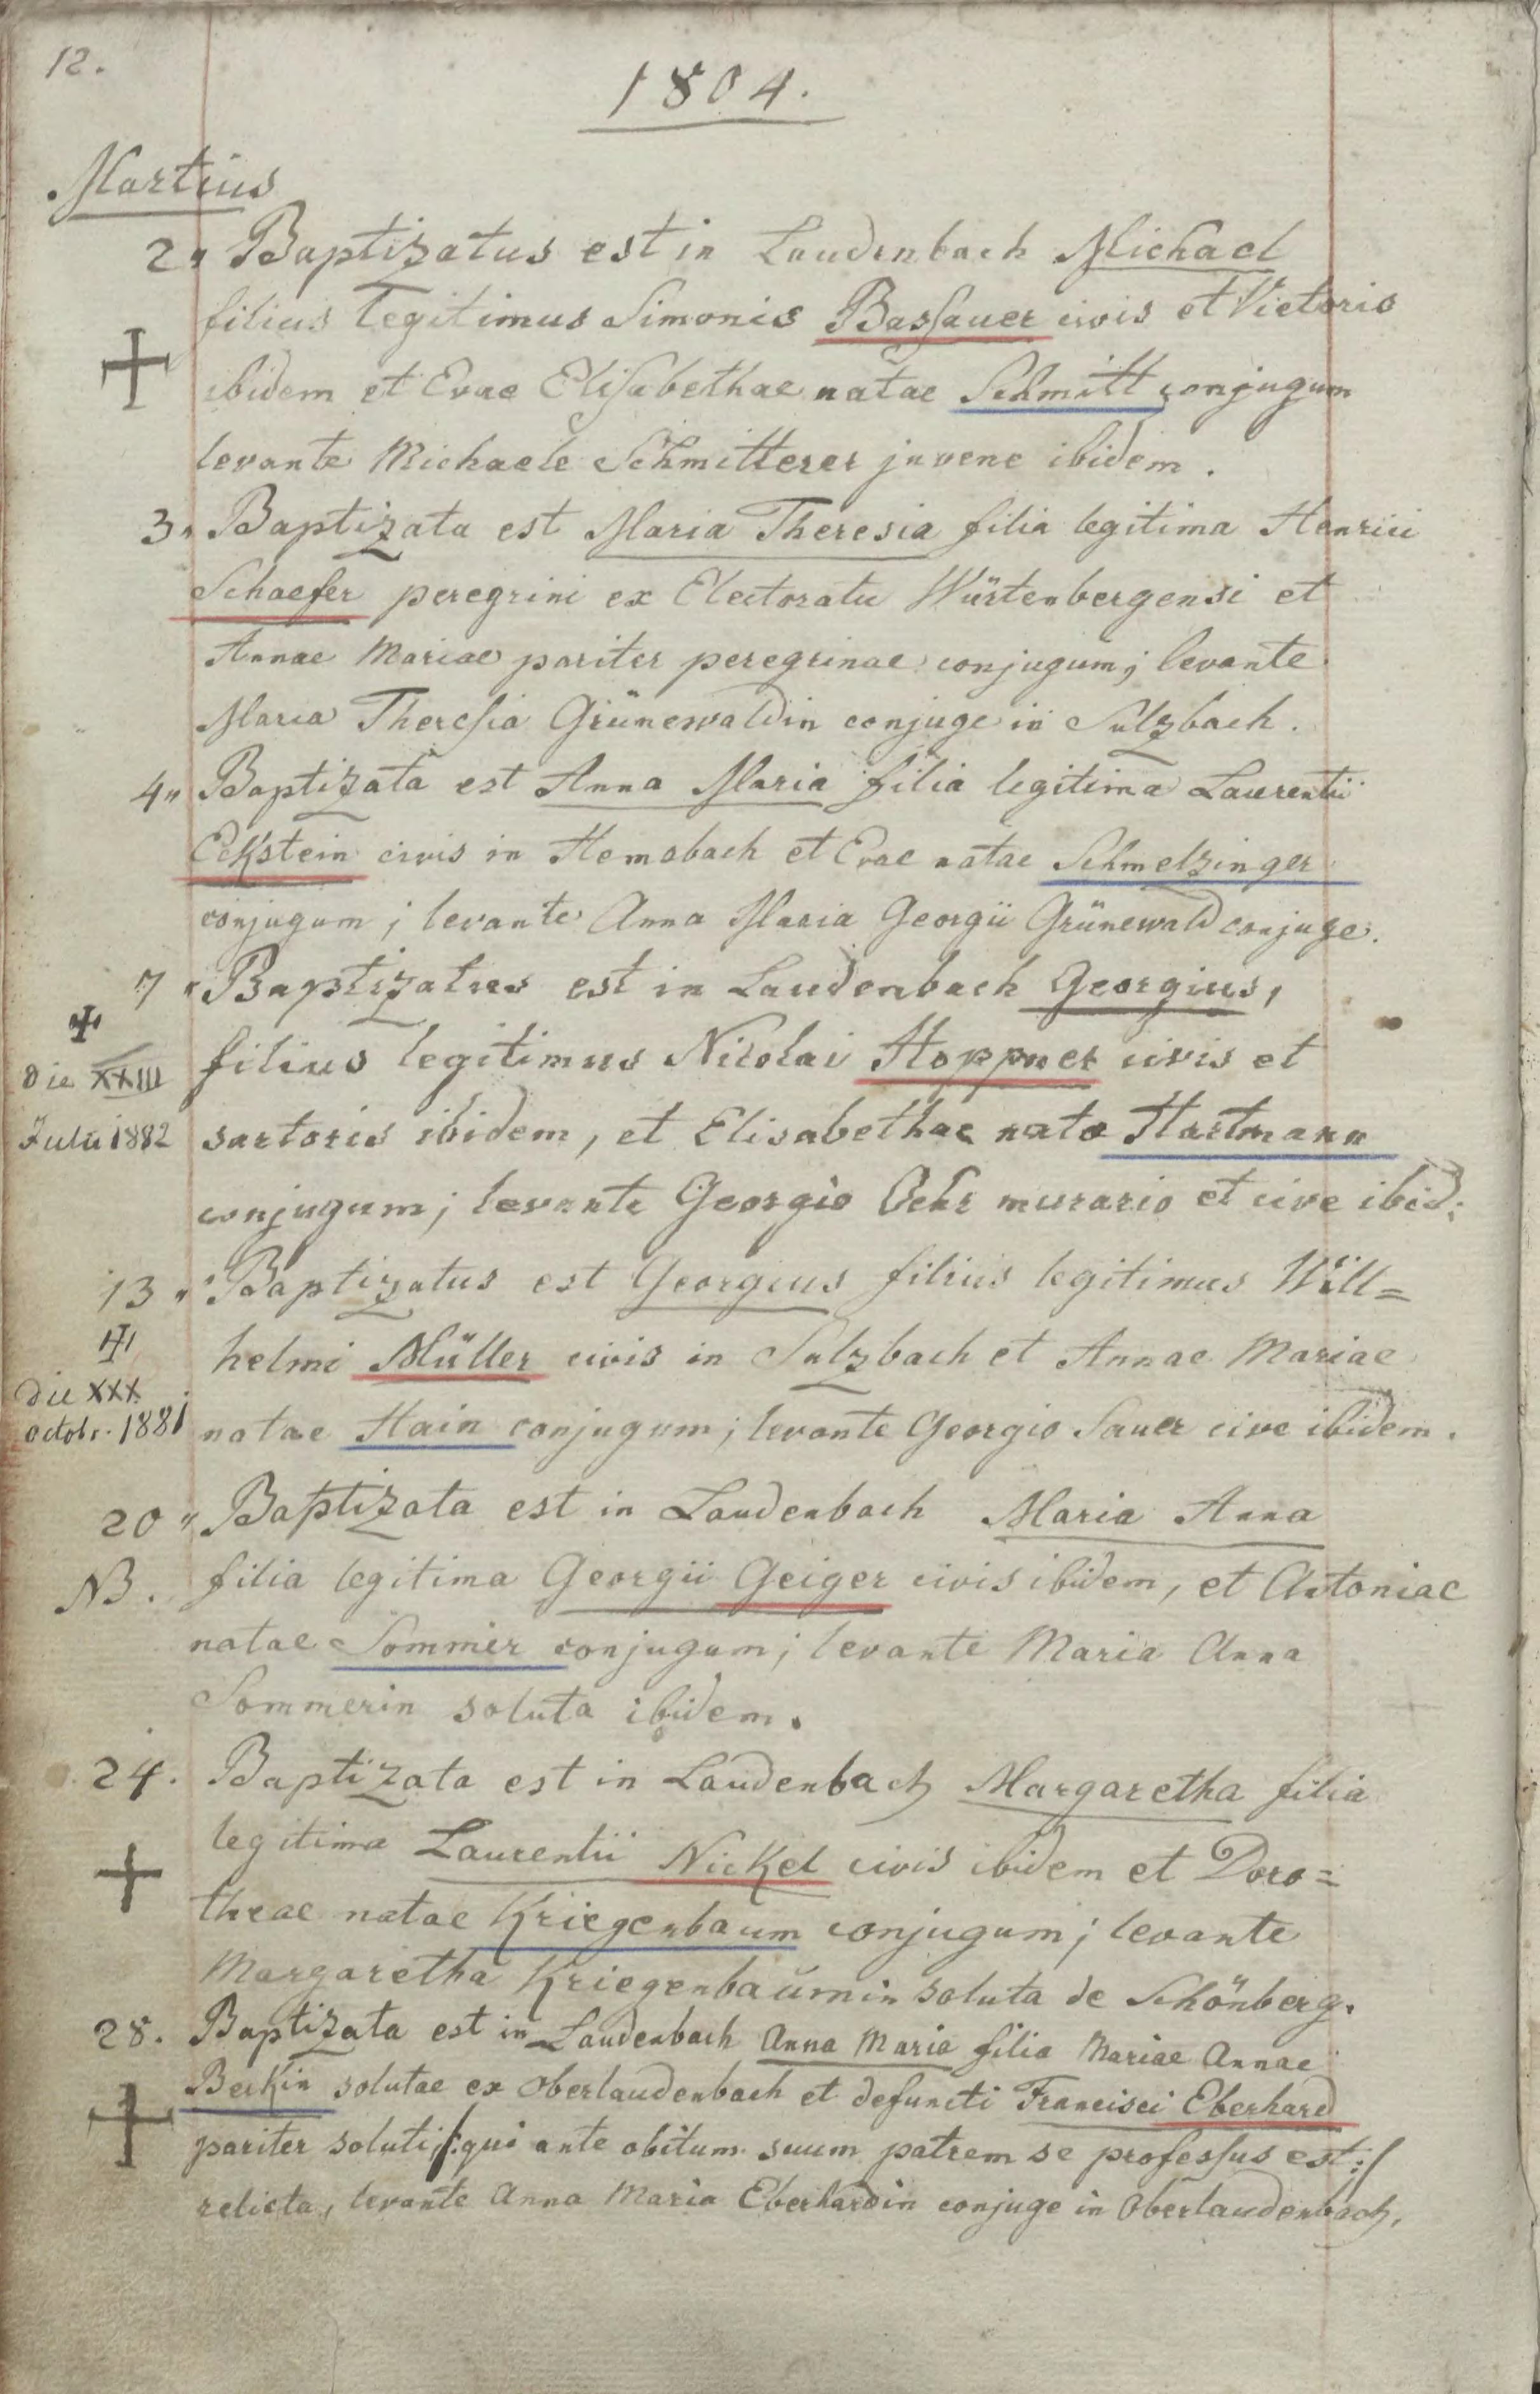 12.
1804.
Martius
2" Baptizatus est in Laudenbach Michael
filius legitimus Simonis Bassauer civis et Victoris
ibidem et Evae Elisabethae natae Schmitt conjugum
levante Michaele Schmitterer juvene ibidem.
3" Baptizata est Maria Theresia filia legitima Henrici
Schaefer peregrini ex Electoratu Würtenbergensi et
Annae Mariae pariter peregrinae conjugum; levante
Maria Theresia Grünewaldin conjuge in Sulzbach.
4" Baptizata est Anna Maria filia legitima Laurentii
Eckstein civis in Hemsbach et Evae natae Schmelzinger
conjugum; levante Anna Maria Georgii Grünewald conjuge.
7" Baptizatus est in Laudenbach Georgius,
filius legitimus Nicolai Hoppner civis et
die XXIII
Julii 1882 sartoris ibidem, et Elisabethae nata Hartmann
conjugum; levante Georgio Oehr murario et cive ibid:
13" Baptizatus est Georgius filius legitimus Will=
helmi Müller civis in Sulzbach et Annae Mariae
die XXX
octobr. 1881 natae Hain conjugum; levante Georgio Sauer cive ibidem.
20" Baptizata est in Laudenbach Maria Anna
NB. filia legitima Georgii Geiger civis ibidem, et Antoniae
natae Sommer conjugum; levante Maria Anna
Sommerin soluta ibidem.
24. Baptizata est in Laudenbach Margaretha filia
legitima Laurentii Nickel civis ibidem et Doro=
theae natae Kriegenbaum conjugum; levante
Margaretha Kriegenbaumin soluta de Schönberg.
28. Baptizata est in Laudenbach Anna Maria filia Mariae Annae
Beckin solutae ex Oberlaudenbach et defuncti Francisci Eberhard
pariter soluti /: qui ante obitum suum patrem se professus est :/
relicta, levante Anna Maria Eberhardin conjuge in Oberlaudenbach.